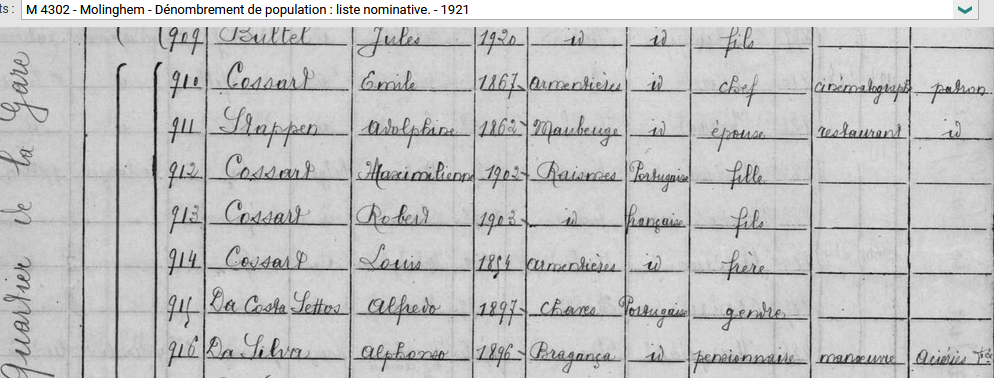 ts : M 4302 - Molinghem - Dénombrement de population : liste nominative. - 1921
Quartier de la Gare
909 Bultel Jules 1920 id id fils
910 Cossart Emile 1867 armentières id chef cinématograph patron
911 Strappen adolphine 1862 Maubeuge id épouse restaurant id
912 Cossart Maximilienne 1902 Raismes Portugaise fille
913 Cossart Robert 1903 id française fils
914 Cossart Louis 1854 armentières id frère
915 Da Costa Lettos alfredo 1897 Chaves Portugaise gendre
916 Da Silva alphonso 1896 Bragança id pensionnaire manœuvre aciéries